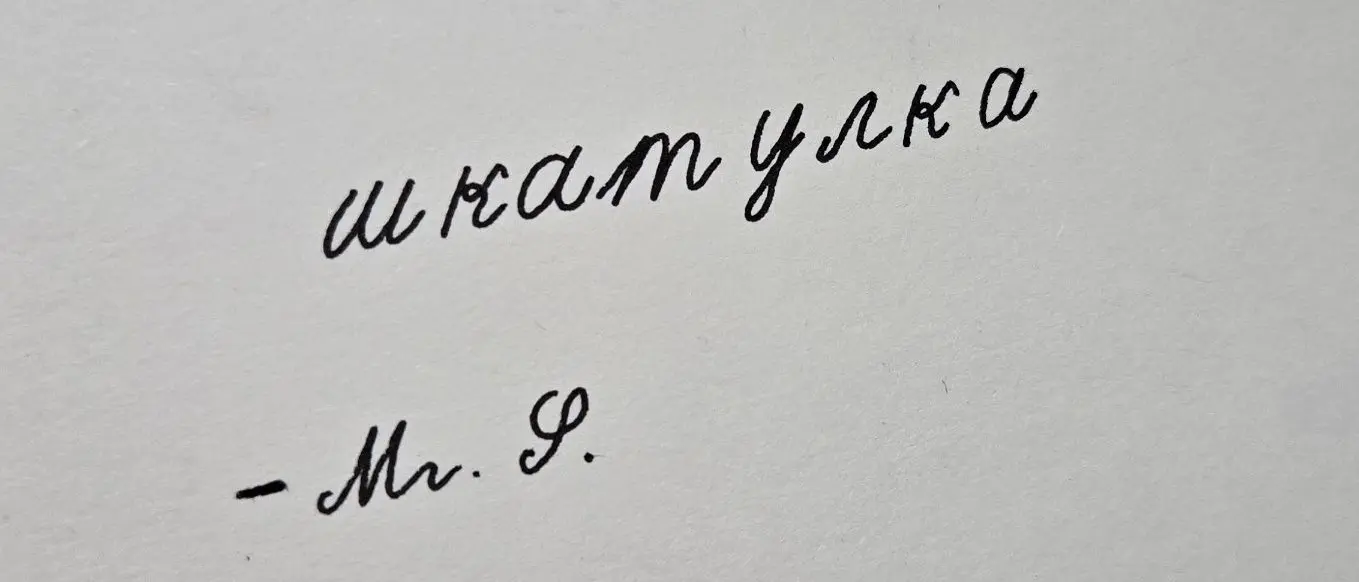 шкатулка
- Mr. S.